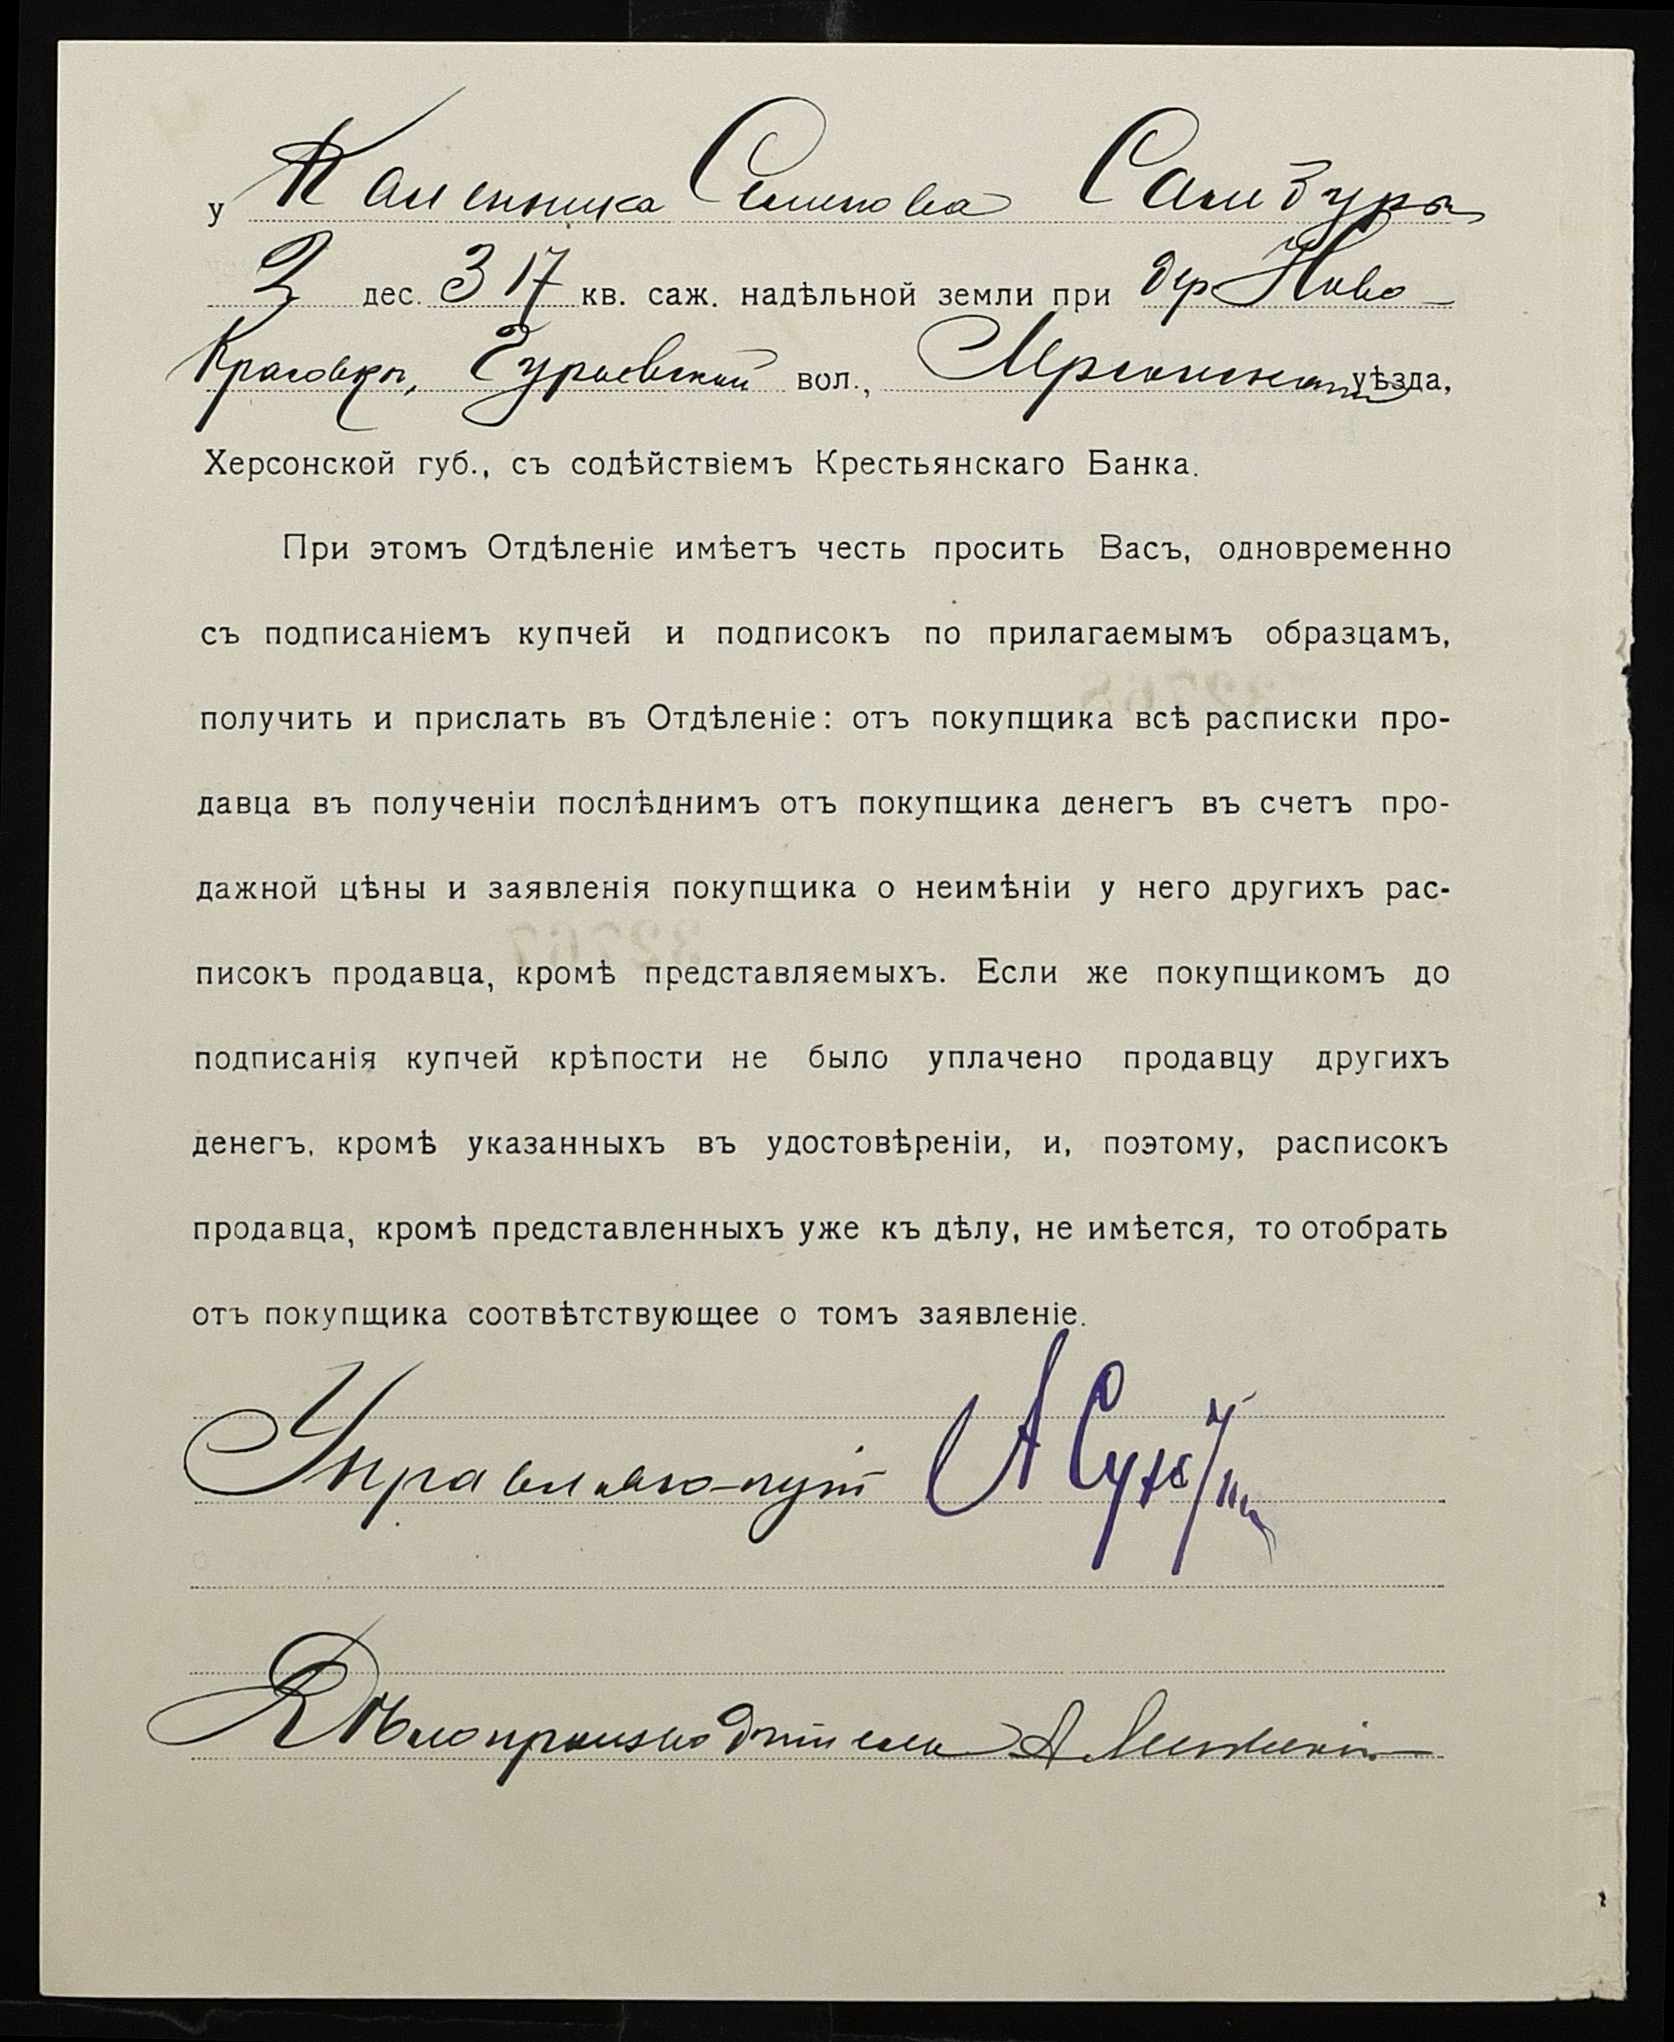 у Калинника Семенова Самбура
2 дес. 317 кв. саж. надѣльной земли при дер Ново-
Красовкѣ, Гурьевской вол., Херсонскаго уѣзда,
Херсонской губ., съ содѣйствіемъ Крестьянскаго Банка.
При этомъ Отдѣленіе имѣетъ честь просить Васъ, одновременно
съ подписаніемъ купчей и подписокъ по прилагаемымъ образцамъ,
получить и прислать въ Отдѣленіе: отъ покупщика всѣ расписки про-
давца въ полученіи послѣднимъ отъ покупщика денегъ въ счетъ про-
дажной цѣны и заявленія покупщика о неимѣніи у него другихъ рас-
писокъ продавца, кромѣ представляемыхъ. Если же покупщикомъ до
подписанія купчей крѣпости не было уплачено продавцу другихъ
денегъ, кромѣ указанныхъ въ удостовѣреніи, и, поэтому, расписокъ
продавца, кромѣ представленныхъ уже къ дѣлу, не имѣется, то отобрать
отъ покупщика соотвѣтствующее о томъ заявленіе.
Управляющій А
Дѣлопроизводитель А